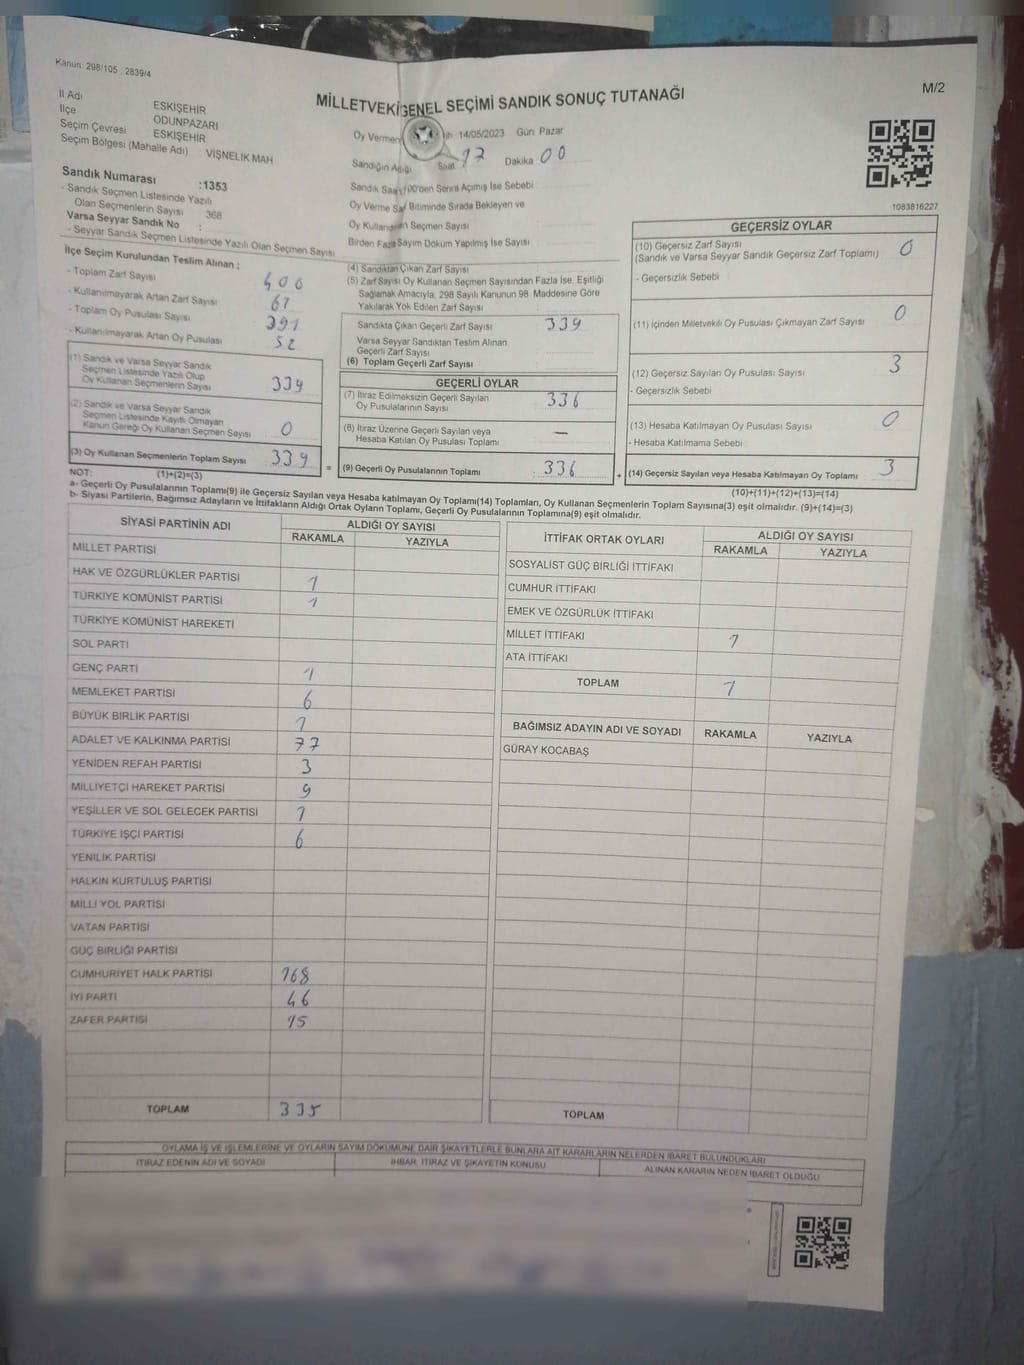 Kanun: 298/105 , 2839/4
M/2
MİLLETVEKİ GENEL SEÇİMİ SANDIK SONUÇ TUTANAĞI
İl Adı ESKİŞEHİR
İlçe ODUNPAZARI
Seçim Çevresi ESKİŞEHİR
Seçim Bölgesi (Mahalle Adı) VİŞNELİK MAH
Oy Vermen 14/05/2023 Gün Pazar
Sandığın Açığı Saat 17 Dakika 00
Sandık Numarası :1353
- Sandık Seçmen Listesinde Yazılı
Olan Seçmenlerin Sayısı 368
Varsa Seyyar Sandık No :
- Seyyar Sandık Seçmen Listesinde Yazılı Olan Seçmen Sayısı
Sandık Saat 00'den Sonra Açımış İse Sebebi
Oy Verme Sa Bitiminde Sırada Bekleyen ve
Oy Kullanan Seçmen Sayısı
Birden Fazla Sayım Döküm Yapılmış İse Sayısı
1083816227
İlçe Seçim Kurulundan Teslim Alınan ;
- Toplam Zarf Sayısı 400
- Kullanılmayarak Artan Zarf Sayısı 61
- Toplam Oy Pusulası Sayısı 391
- Kullanılmayarak Artan Oy Pusulası 52
(1) Sandık ve Varsa Seyyar Sandık
Seçmen Listesinde Yazılı Olup
Oy Kullanan Seçmenlerin Sayısı 339
(2) Sandık ve Varsa Seyyar Sandık
Seçmen Listesinde Kayıtlı Olmayan
Kanun Gereği Oy Kullanan Seçmen Sayısı 0
(3) Oy Kullanan Seçmenlerin Toplam Sayısı 339
(4) Sandıktan Çıkan Zarf Sayısı
(5) Zarf Sayısı Oy Kullanan Seçmen Sayısından Fazla İse, Eşitliği
Sağlamak Amacıyla, 298 Sayılı Kanunun 98. Maddesine Göre
Yakılarak Yok Edilen Zarf Sayısı
Sandıkta Çıkan Geçerli Zarf Sayısı 339
Varsa Seyyar Sandıktan Teslim Alınan
Geçerli Zarf Sayısı
(6) Toplam Geçerli Zarf Sayısı
GEÇERLİ OYLAR
(7) İtiraz Edilmeksizin Geçerli Sayılan
Oy Pusulalarının Sayısı 336
(8) İtiraz Üzerine Geçerli Sayılan veya
Hesaba Katılan Oy Pusulası Toplamı —
= (9) Geçerli Oy Pusulalarının Toplamı 336
GEÇERSİZ OYLAR
(10) Geçersiz Zarf Sayısı 0
(Sandık ve Varsa Seyyar Sandık Geçersiz Zarf Toplamı)
- Geçersizlik Sebebi
(11) İçinden Milletvekili Oy Pusulası Çıkmayan Zarf Sayısı 0
(12) Geçersiz Sayılan Oy Pusulası Sayısı 3
- Geçersizlik Sebebi
(13) Hesaba Katılmayan Oy Pusulası Sayısı 0
- Hesaba Katılmama Sebebi
+ (14) Geçersiz Sayılan veya Hesaba Katılmayan Oy Toplamı 3
NOT: (1)+(2)=(3)
(10)+(11)+(12)+(13)=(14)
a- Geçerli Oy Pusulalarının Toplamı(9) ile Geçersiz Sayılan veya Hesaba katılmayan Oy Toplamı(14) Toplamları, Oy Kullanan Seçmenlerin Toplam Sayısına(3) eşit olmalıdır. (9)+(14)=(3)
b- Siyasi Partilerin, Bağımsız Adayların ve İttifakların Aldığı Ortak Oyların Toplamı, Geçerli Oy Pusulalarının Toplamına(9) eşit olmalıdır.
SİYASİ PARTİNİN ADI ALDIĞI OY SAYISI
RAKAMLA YAZIYLA
MİLLET PARTİSİ
HAK VE ÖZGÜRLÜKLER PARTİSİ 1
TÜRKİYE KOMÜNİST PARTİSİ 1
TÜRKİYE KOMÜNİST HAREKETİ
SOL PARTİ
GENÇ PARTİ 1
MEMLEKET PARTİSİ 6
BÜYÜK BİRLİK PARTİSİ 1
ADALET VE KALKINMA PARTİSİ 77
YENİDEN REFAH PARTİSİ 3
MİLLİYETÇİ HAREKET PARTİSİ 9
YEŞİLLER VE SOL GELECEK PARTİSİ 1
TÜRKİYE İŞÇİ PARTİSİ 6
YENİLİK PARTİSİ
HALKIN KURTULUŞ PARTİSİ
MİLLİ YOL PARTİSİ
VATAN PARTİSİ
GÜÇ BİRLİĞİ PARTİSİ
CUMHURİYET HALK PARTİSİ 168
İYİ PARTİ 46
ZAFER PARTİSİ 15
TOPLAM 335
İTTİFAK ORTAK OYLARI ALDIĞI OY SAYISI
RAKAMLA YAZIYLA
SOSYALİST GÜÇ BİRLİĞİ İTTİFAKI
CUMHUR İTTİFAKI
EMEK VE ÖZGÜRLÜK İTTİFAKI
MİLLET İTTİFAKI 1
ATA İTTİFAKI
TOPLAM 1
BAĞIMSIZ ADAYIN ADI VE SOYADI RAKAMLA YAZIYLA
GÜRAY KOCABAŞ
TOPLAM
OYLAMA İŞ VE İŞLEMLERİNE VE OYLARIN SAYIM DÖKÜMÜNE DAİR ŞİKAYETLERLE BUNLARA AİT KARARLARIN NELERDEN İBARET BULUNDUKLARI
İTİRAZ EDENİN ADI VE SOYADI İHBAR, İTİRAZ VE ŞİKAYETİN KONUSU ALINAN KARARIN NEDEN İBARET OLDUĞU